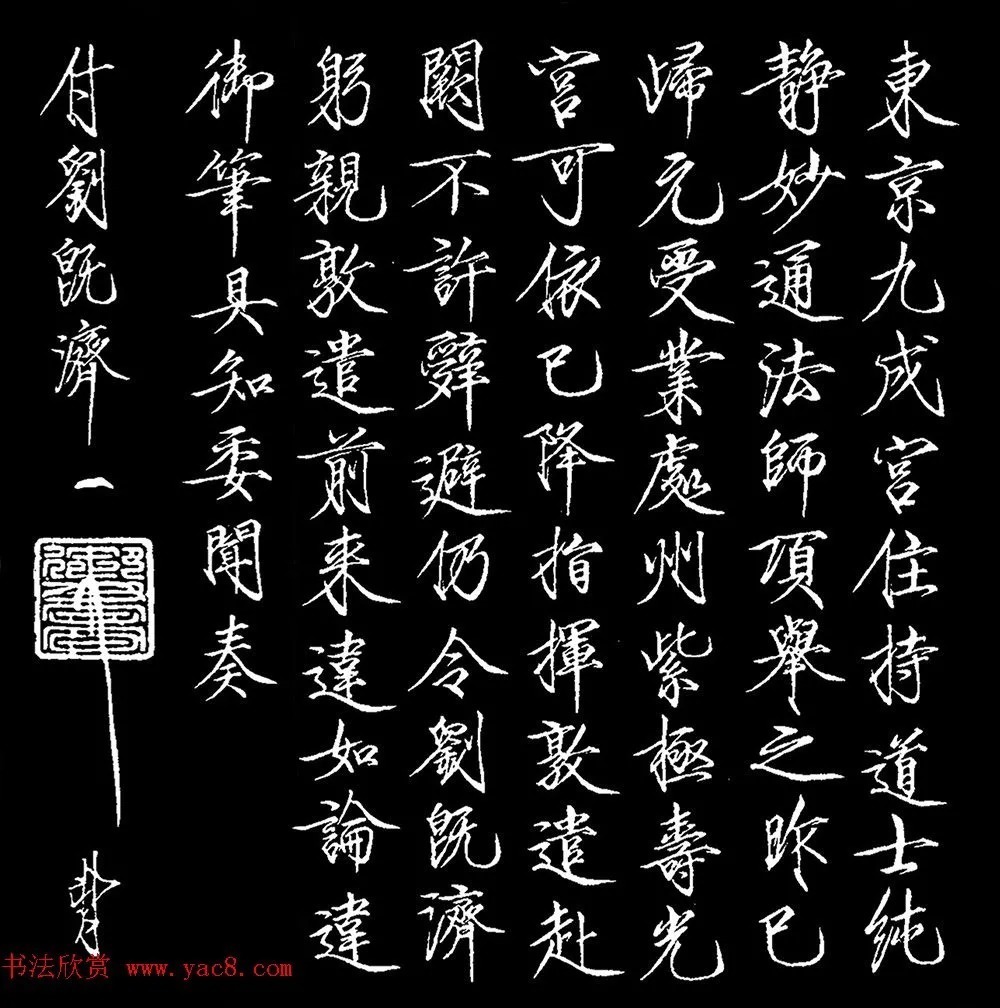 東京九成宮住持道士純
静妙通法師項舉之昨已
歸元受業處州紫極壽光
宮可依已降指揮敦遣赴
闕不許辭避仍令劉既濟
躬親敦遣前来違如論違
御筆具知委聞奏
付劉既濟
书法欣赏 www.yac8.com